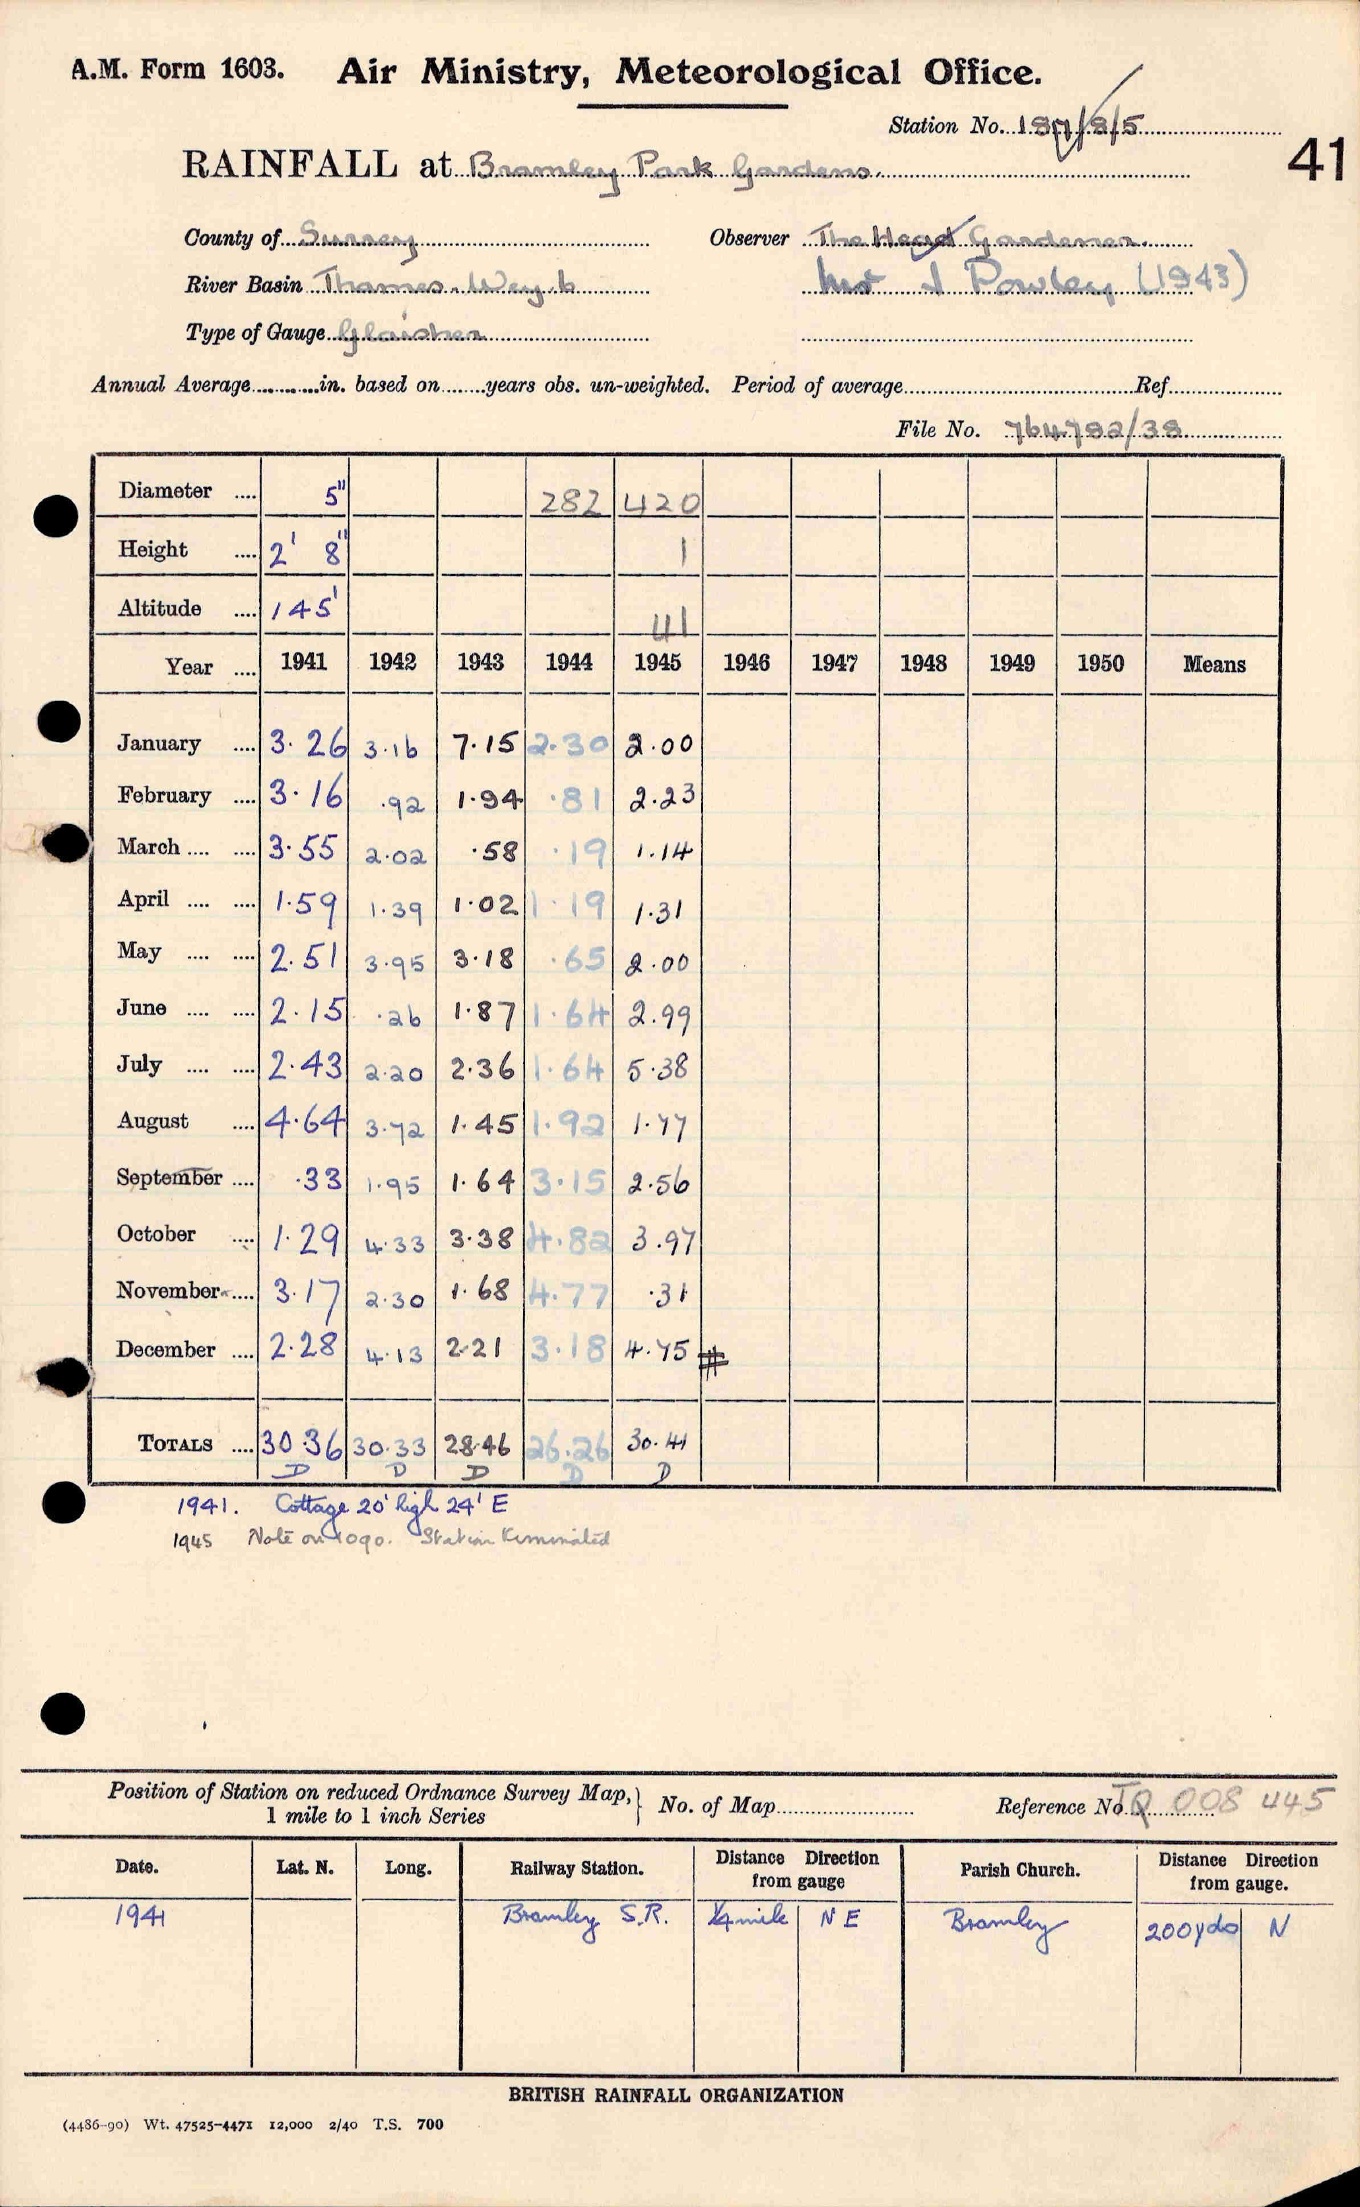 A.M. Form 1603. Air Ministry, Meteorological Office.
Station No. 187/8/5
41
RAINFALL at Bramley Park Gardens.
County of Surrey Observer The Head Gardener.
River Basin Thames. Wey. b Mr J Powley (1943)
Type of Gauge Glaisher
Annual Average............in. based on........years obs. un-weighted. Period of average........Ref........
File No. 764782/38
Diameter .... 5" 282 420
Height .... 2' 8" 1
Altitude .... 145' 41
Year .... 1941 1942 1943 1944 1945 1946 1947 1948 1949 1950 Means
January .... 3.26 3.16 7.15 2.30 2.00
February .... 3.16 .92 1.94 .81 2.23
March .... .... 3.55 2.02 .58 .19 1.14
April .... .... 1.59 1.39 1.02 1.19 1.31
May .... .... 2.51 3.95 3.18 .65 2.00
June .... .... 2.15 .26 1.87 1.64 2.99
July .... .... 2.43 2.20 2.36 1.64 5.38
August .... 4.64 3.72 1.45 1.92 1.77
September .... .33 1.95 1.64 3.15 2.56
October .... 1.29 4.33 3.38 4.82 3.97
November .... 3.17 2.30 1.68 4.77 .31
December .... 2.28 4.13 2.21 3.18 4.75 #
TOTALS .... 30.36 30.33 28.46 26.26 30.41
D D D D D
1941. Cottage 20' high 24' E
1945 Note on 1090. Station terminated
Position of Station on reduced Ordnance Survey Map, 1 mile to 1 inch Series } No. of Map........ Reference No. TQ 008 445
Date. Lat. N. Long. Railway Station. Distance Direction from gauge Parish Church. Distance Direction from gauge.
1941 Bramley S.R. ¼ mile N E Bramley 200 yds N
BRITISH RAINFALL ORGANIZATION
(4486-90) Wt. 47525-4471 12,000 2/40 T.S. 700